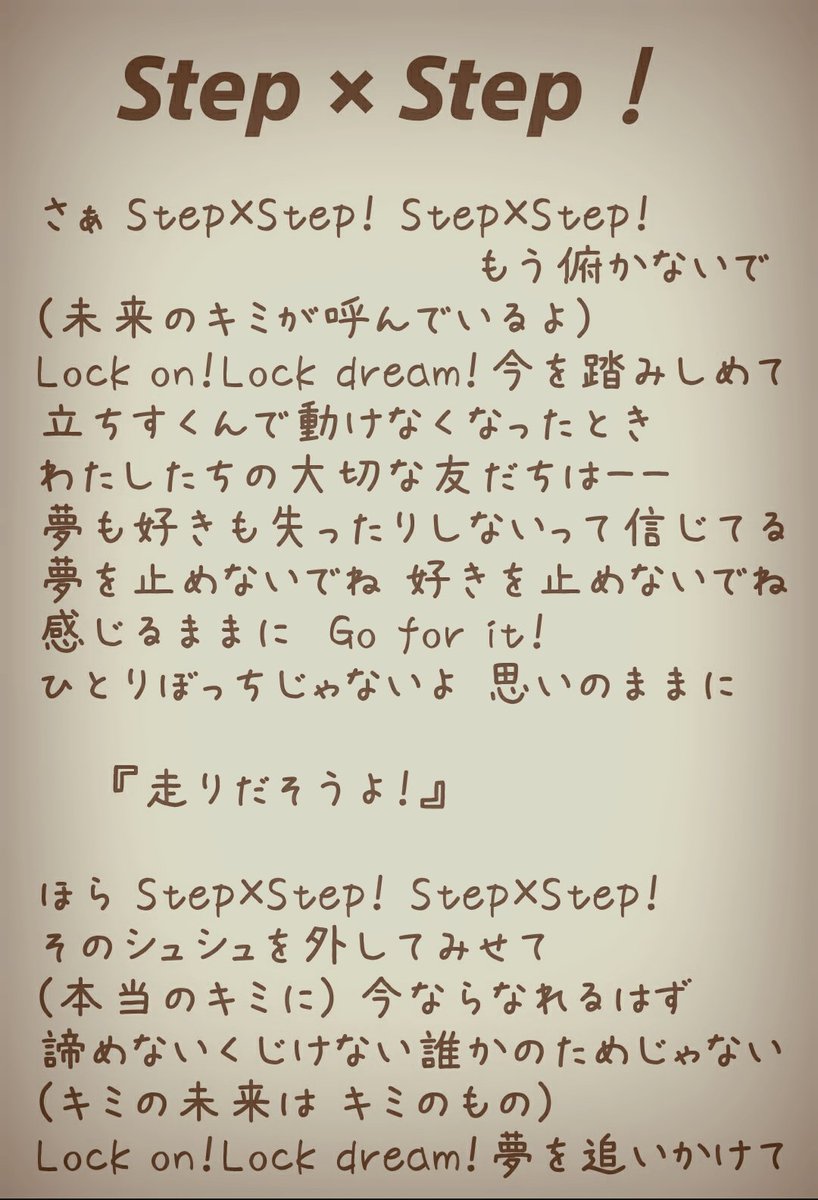 Step × Step！
さぁ Step×Step! Step×Step!
もう俯かないで
(未来のキミが呼んでいるよ)
Lock on!Lock dream!今を踏みしめて
立ちすくんで動けなくなったとき
わたしたちの大切な友だちはーー
夢も好きも失ったりしないって信じてる
夢を止めないでね 好きを止めないでね
感じるままに Go for it!
ひとりぼっちじゃないよ 思いのままに
『走りだそうよ!』
ほら Step×Step! Step×Step!
そのシュシュを外してみせて
(本当のキミに) 今ならなれるはず
諦めないくじけない誰かのためじゃない
(キミの未来は キミのもの)
Lock on!Lock dream!夢を追いかけて